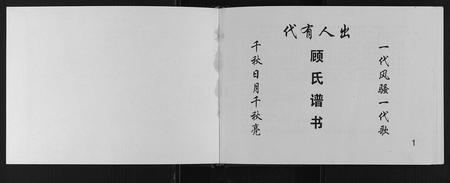 出人有代
一代风骚一代歌
顾氏谱书
千秋日月千秋亮
1